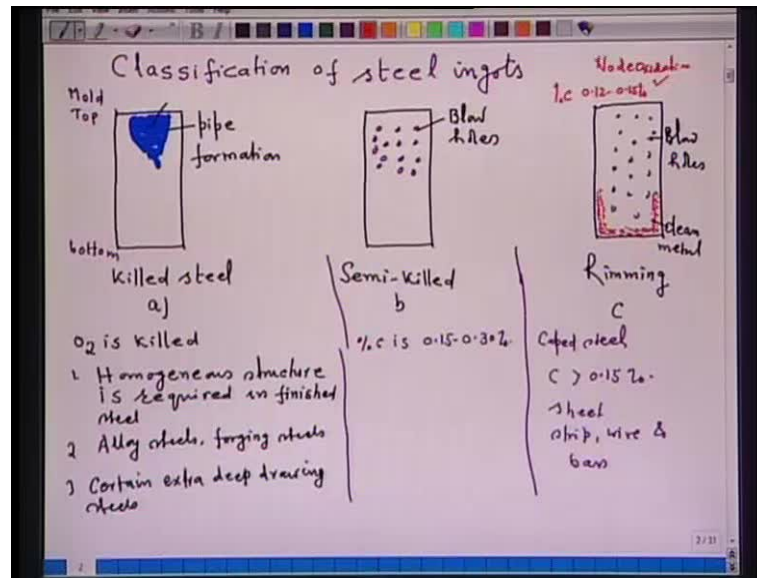 Classification of steel ingots
Mold
Top
pipe
formation
bottom
Killed steel
a)
O2 is killed
1. Homogeneous structure
is required in finished
steel
2 Alloy steels, forging steels
3 Certain extra deep drawing
steels
Blow
holes
Semi-killed
b
%C is 0.15-0.30%.
No deoxidation
%C 0.12-0.15%
Blow
holes
clean
metal
Rimming
C
Capped steel
C > 0.15%.
sheet
strip, wire &
bars
2/31
2